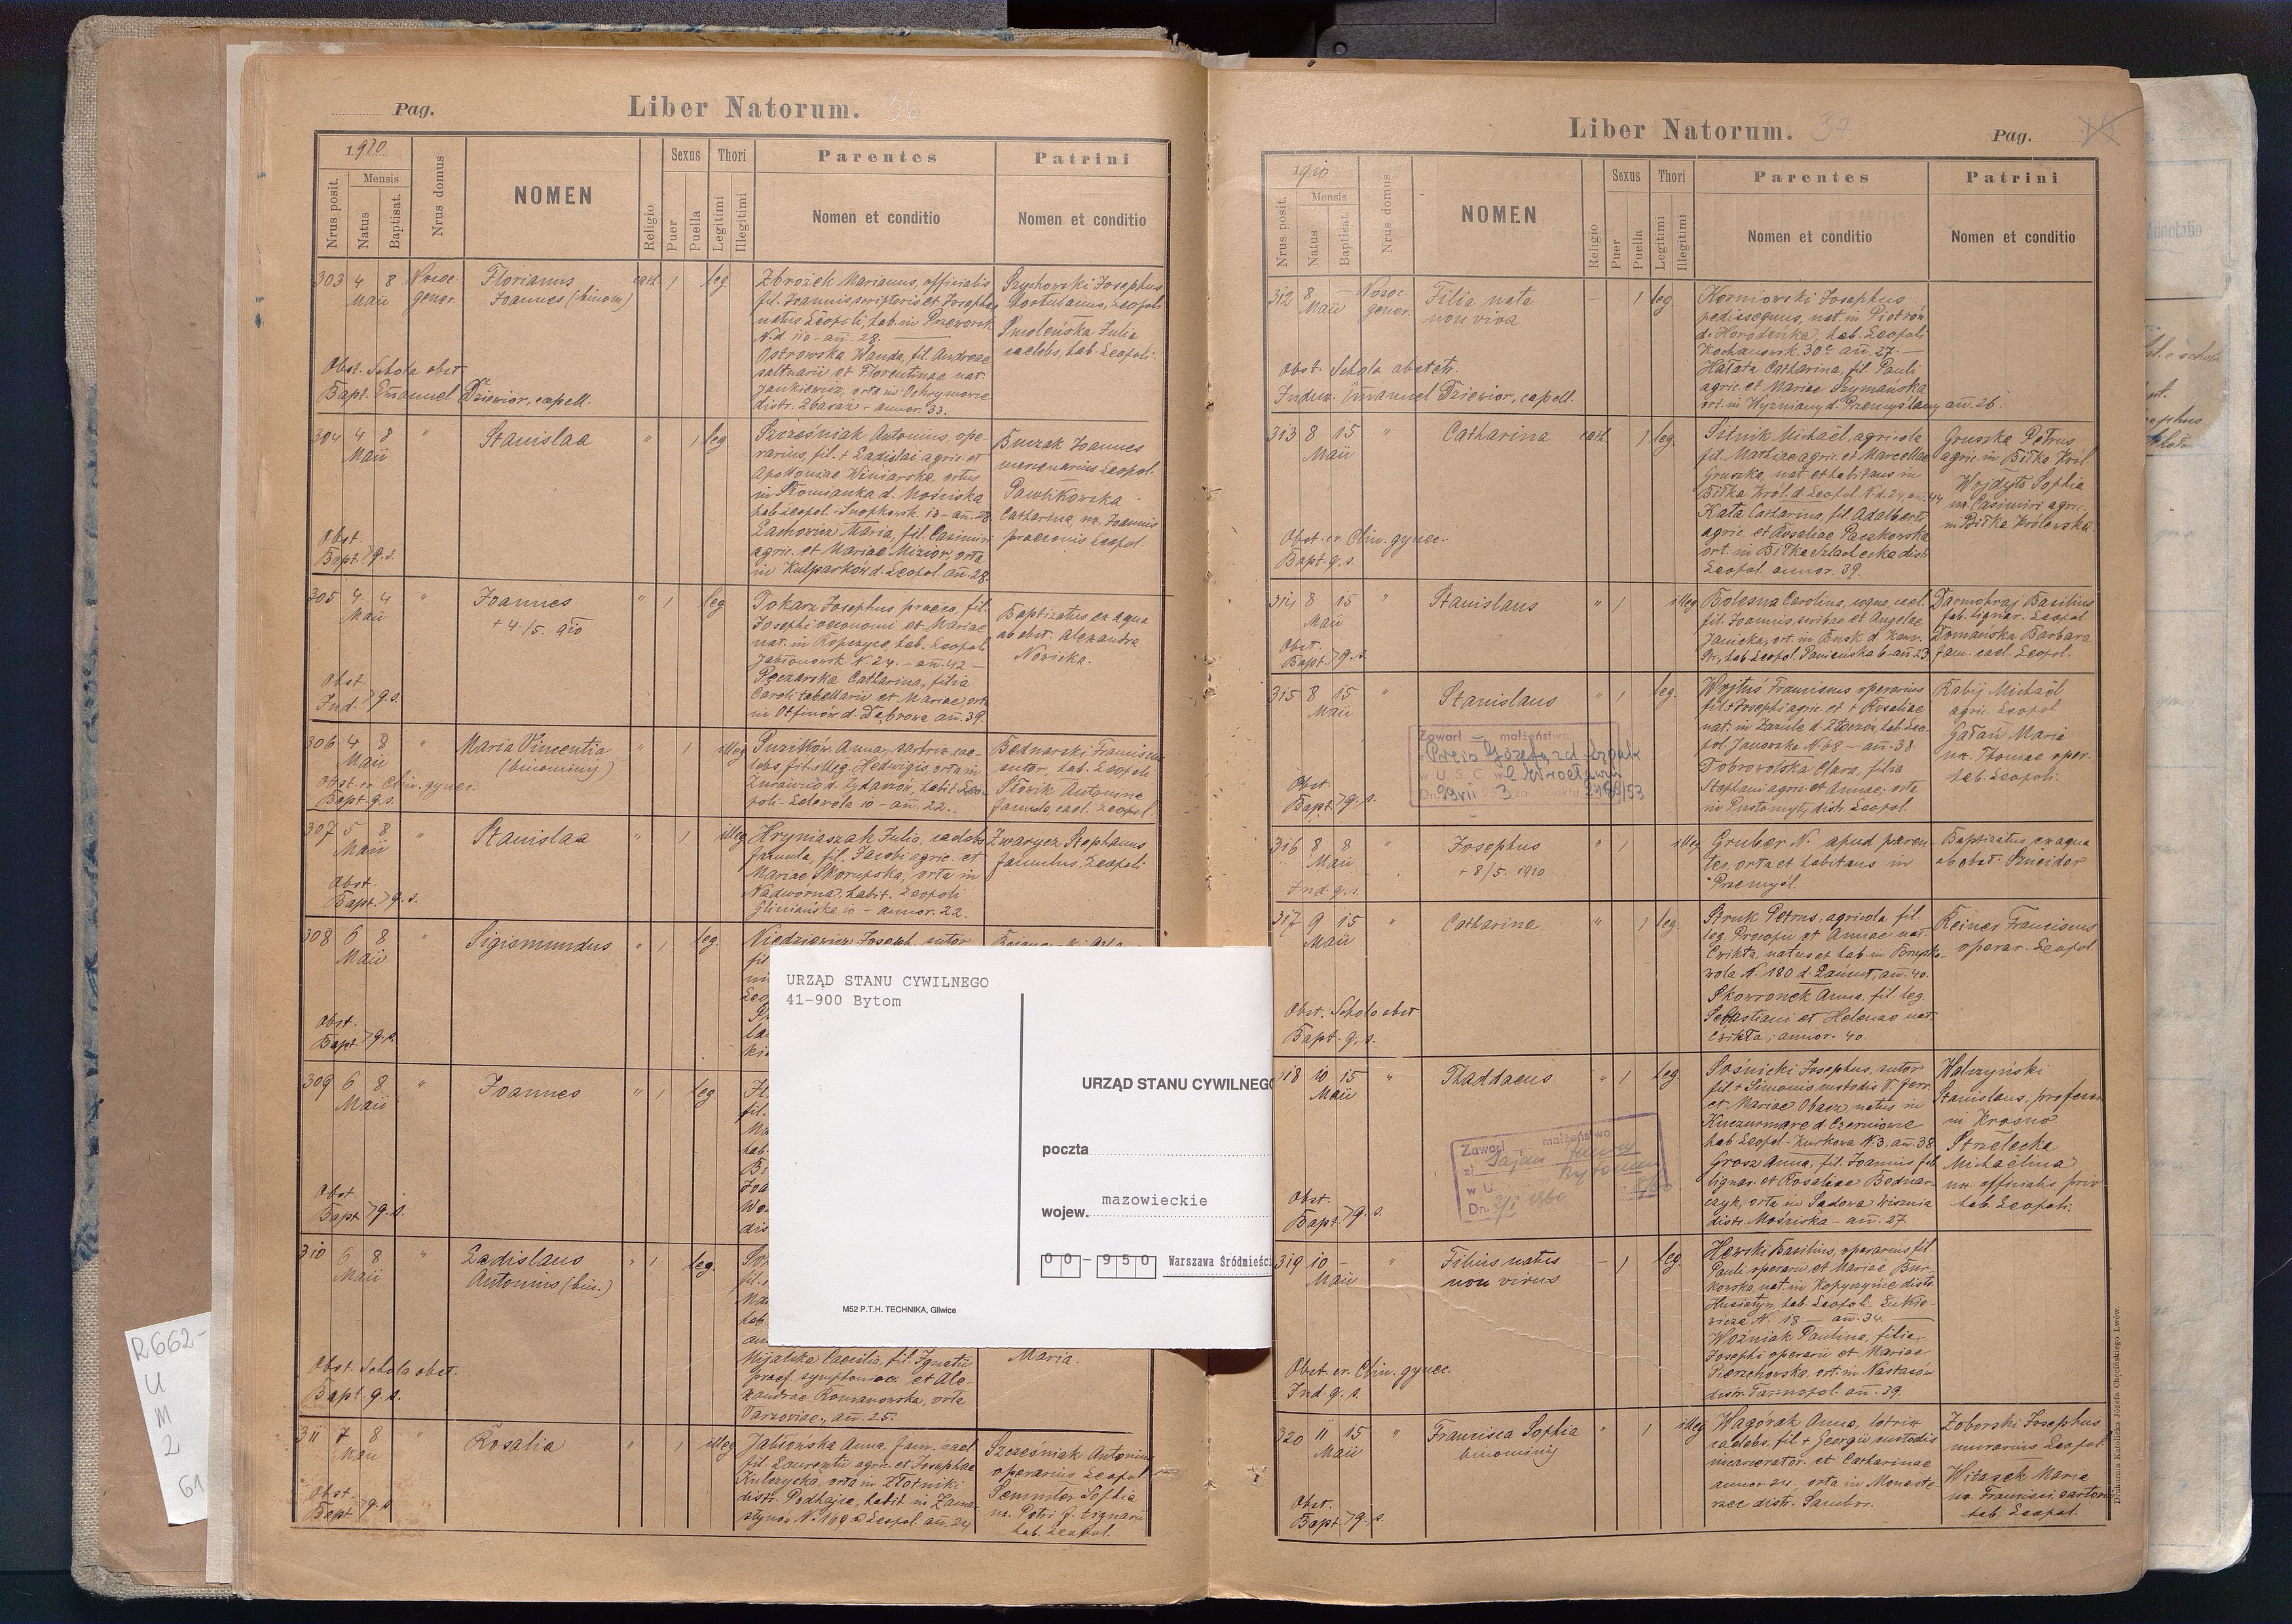 Pag.
Liber Natorum. 36
1910
Nrus posit.
Mensis
Natus
Baptisat.
Nrus domus
NOMEN
Religio
Sexus
Puer
Puella
Thori
Legitimi
Illegitimi
Parentes
Nomen et conditio
Patrini
Nomen et conditio
303 4 8 Maii
Nosoc. gener.
Florianus
Joannes (binom)
cath. 1 leg.
Zbrożek Marianus, officialis
fil. Joannis, scriptoris et Josephae
natus Leopoli, hab. in Przeworsk
N.d. 110 - añ. 28.
Ostrowska Wanda, fil. Andreae
saltuarii et Florentinae nat.
Jankiewicz, orta in Ochrymowce
distr. Zbaraż - annor. 33.
Szychowski Josephus
hortulanus, Leopoli
Smoleńska Julia
caelebs, hab. Leopoli.
Obst. Schola obst.
Bapt. Emanuel Dziewior, capell.
304 4 8 Maii
"
Stanislaa
" 1 leg.
Szcześniak Antonius, ope-
rarius, fil. + Ladislai agric. et
Apoloniae Winiarska, ortus
in Słomianka d. Mościska
hab. Leopol. - Snopkowsk. 13 - añ. 28
Lachowicz Maria, fil. Casimiri
agric. et Mariae Mizior, orta
in Kulparków d. Leopol. añ. 28.
Burzak Joannes
mercenarius Leopol.
Pawlikowska
Catharina, ux. Joannis
praeconis Leopol.
Obst.
Bapt. q. s.
305 4 4 Maii
"
Joannes
+ 4./5. 910
" 1 leg.
Tokarz Josephus praeco, fil.
Josephi oeconomi et Mariae
nat. in Kopczyce, hab. Leopoli
Jabłonowsk. N 24. - añ. 42 -
Pęczarska Catharina, filia
Caroli tabellarii et Mariae, orta
in Otfinów d. Dąbrowa añ. 39.
Baptisatus ex aqua
ab obst. Alexandra
Nowicka.
Obst.
Ind. q. s.
306 4 8 Maii
"
Maria Vincentia
(binominij)
" 1 illeg.
Puzików Anna, sartrix, cae-
lebs, fil. illeg. Hedwigis, orta in
Żurawno d. Żydaczów, habit. Leo-
poli - Zelowola 10 - añ. 22.
Bednarski Franciscus
sutor, hab. Leopoli
Słowik Antonina
famula, cael. Leopol.
Obst. ex Clin. gynec.
Bapt. q. s.
307 5 8 Maii
"
Stanislaa
" 1 illeg.
Hryniaszak Julia, caelebs
famula, fil. Jacobi agric. et
Mariae Skorupska, orta in
Nadwórna, habit. Leopoli
Gliniańska 10 - annor. 22.
Zwarycz Stephanus
famulus, Leopoli
Obst.
Bapt. q. s.
308 6 8 Maii
"
Sigismundus
" 1 leg.
Niedziewicz Joseph, sutor
Obst.
Bapt. q. s.
309 6 8 Maii
"
Joannes
" 1 leg.
Obst.
Bapt. q. s.
310 6 8 Maii
"
Ladislaus
Antonius (bin.)
" 1 leg.
Mijalska Caecilia, fil. Ignatii
praef. symphoniae et Ale-
xandrae Romanowska, orta
Varsoviae, añ. 25.
Maria.
Obst. Schola obst.
Bapt. q. s.
311 7 8 Maii
"
Rosalia
" 1 illeg.
Jabłońska Anna, fam. cael.
fil. Laurentii agric. et Josephae
Kulczycka, orta in Złotniki
distr. Podhajce, habit. in Zama-
rstynów N. 169 d. Leopol. añ. 24
Szcześniak Antonius
operarius Leopol
Semmler Sophia
ux. Petri f. lignarii
hab. Leopol.
Obst.
Bapt. q. s.
URZĄD STANU CYWILNEGO
41-900 Bytom
URZĄD STANU CYWILNEGO
poczta
wojew. mazowieckie
00-950 Warszawa Śródmieści
M52 P.T.H. TECHNIKA, Gliwice
R662-
U
M
2
61
Liber Natorum. 37
Pag.
1910
Nrus posit.
Mensis
Natus
Baptisat.
Nrus domus
NOMEN
Religio
Sexus
Puer
Puella
Thori
Legitimi
Illegitimi
Parentes
Nomen et conditio
Patrini
Nomen et conditio
312 8 - Maii
Nosoc. gener.
Filia nata
non viva
- 1 leg
Korniowski Josephus
pedissequus, nat. in Piotrów
d. Horodenka, hab. Leopoli
Kochanowsk. 30c añ. 27. -
Hałata Catharina, fil. Pauli
agric. et Mariae Szymańska
ort. in Wyżniany d. Przemyślany añ. 26.
Obst. Schola obstetr.
Indux. Emanuel Dziewior, capell.
313 8 15 Maii
"
Catharina
cath. 1 leg.
Sitnik Michaël, agricola
fil. Mathiae agric. et Marcellae
Gruszka, nat. et habitans in
Biłka Król. d. Leopol. N.d. 24, an. 44
Kata Catharina, fil. Adalberti
agric. et Rosaliae Paczkowska
ort. in Biłka Szlachecka distr.
Leopol. annor. 39.
Gruszka Petrus
agric. in Biłka Król
Wojdyło Sophia
ux. Casimiri agric.
in Biłka Królewska.
Obst. ex Clin. gynec.
Bapt. q. s.
314 8 15 Maii
"
Stanislaus
" 1 illeg
Bolesna Carolina, coqua, cael.
fil. Joannis, scribae et Angelae
Janicka, ort. in Busk d. Kam.
Str., hab. Leopol. Panieńska 6 - añ. 23
Darmohraj Basilius
fab. lignar. Leopol
Domańska Barbara
fam. cael. Leopol.
Obst.
Bapt. q. s.
315 8 15 Maii
"
Stanislaus
" 1 leg.
Wojtuś Franciscus operarius
fil. + Josephi agric. et + Rosaliae
nat. in Zarule d. Złoczów, hab. Leo-
pol. Janowska N. 68 - añ. 38.
Dobrowolska Clara, filia
Stephani agric. et Annae, orta
in Pustomyty, distr. Leopol.
Kabij Michaël
agric. Leopol
Gałań Maria
ux. Thomae oper.
hab. Leopoli.
Zawarł małżeństwo
Józefą zd.
w U. S. C. we Wrocławiu
Dn. 29 VII 53
Obst.
Bapt. q. s.
316 8 8 Maii
"
Josephus
+ 8/5. 1910
" 1 illeg
Gruber N. apud paren-
tes, orta et habitans in
Przemyśl.
Baptisatus ex aqua
ab obst. Szneider
Ind. q. s.
317 9 15 Maii
"
Catharina
" 1 leg.
Struk Petrus, agricola fil.
leg. Procopii et Annae nat.
Cwikta, natus et hab. in
wola N. 180 d. Łańcut, añ. 40.
Skowronek Anna, fil. leg.
Sebastiani et Helenae nat.
Cwikta, annor. 40.
Reiner Franciscus
operar. Leopol
Obst. Schola obst
Bapt. q. s.
318 10 15 Maii
"
Thaddaeus
" 1 leg.
Sośnicki Josephus, sutor
fil. + Simonis custodis v. ferr.
et Mariae Obacz, natus in
Kuczurmare d. Czerniowce
hab. Leopol. - Kurkowa N. 3, añ. 38
Grosz Anna, fil. Joannis fab.
lignar. et Rosaliae Bednar-
czyk, orta in Sądowa Wisznia
distr. Mościska - añ. 27.
Walczyński
Stanislaus, professor
in Krosno.
Strzelecka
Michaëlina
ux. officialis priv.
hab. Leopoli.
Zawarł małżeństwo
w U. Bytomiu
Dn. 2/I 1960
Obst.
Bapt. q. s.
319 10 - Maii
"
Filius natus
non vivus
- 1 leg
Hewski Basilius, operarius fil.
Pauli operarii et Mariae Bur-
kowska, nat. in Kopyczyńce distr.
Husiatyn, hab. Leopoli - Łukie-
wicza N. 18 - añ. 34.
Woźniak Paulina, filia
Josephi operarii et Mariae
Pierzchowska, ort. in Nastasów
distr. Tarnopol. añ. 39.
Obst. ex Clin. gynec.
Ind. q. s.
320 11 15 Maii
"
Francisca Sophia
binominij
" 1 illeg
Wagórak Anna, lotrix
caelebs, fil. + Georgii custodis
incarcerator. et Catharinae
annor. 24, orta in Monaste-
rzec distr. Sambor.
Zoborski Josephus
murarius Leopol.
Witasek Maria
ux. Francisci sartoris
hab. Leopol.
Obst.
Bapt. q. s.
Drukarnia Katolicka Józefa Chęcińskiego Lwów.